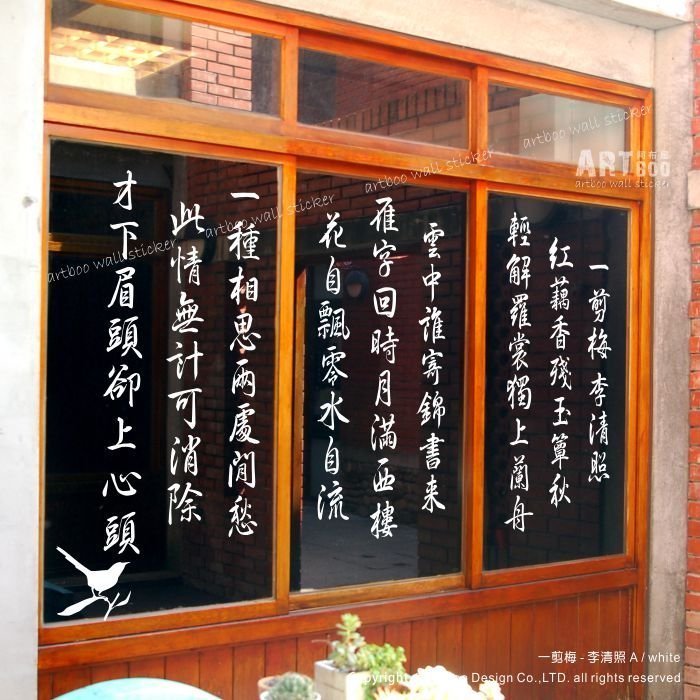 一剪梅 李清照
紅藕香殘玉簟秋
輕解羅裳獨上蘭舟
雲中誰寄錦書來
雁字回時月滿西樓
花自飄零水自流
一種相思兩處閒愁
此情無計可消除
才下眉頭卻上心頭
artboo wall sticker
artboo wall sticker
artboo wall sticker
artboo wall sticker
ART BOO 阿布屋
artboo wall sticker
一剪梅 - 李清照 A / white
Design Co.,LTD. all rights reserved